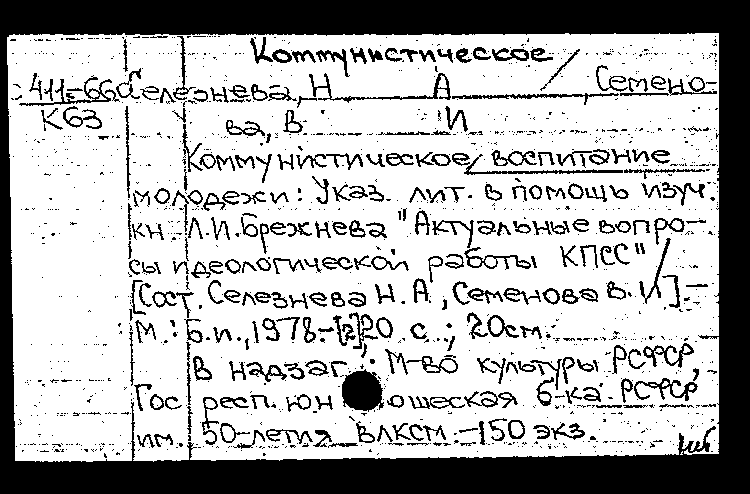 Коммунистическое
411-66а Селезнева, Н А , Семено-
К63 ва, В И
Коммунистическое воспитание
молодежи: Указ. лит. в помощь изуч.
кн. Л.И.Брежнева "Актуальные вопро-
сы идеологической работы КПСС" /
[Сост. Селезнева Н.А, Семенова В.И].-
М.: б.и., 1978.-[2]20 с.; 20см.
В надзаг.: М-во культуры РСФСР,
Гос респ. юн ошеская б-ка РСФСР
им. 50-летия ВЛКСМ.-150 экз.